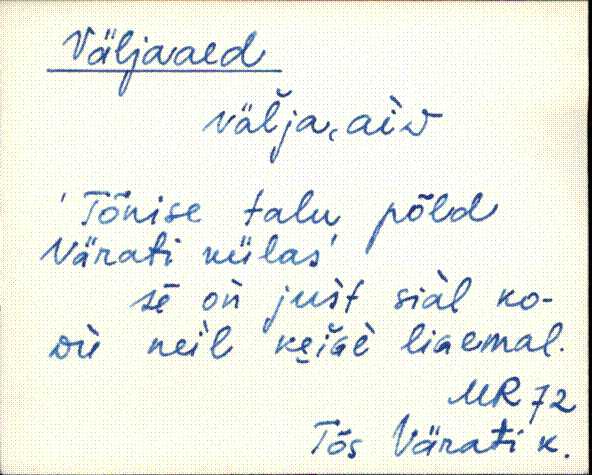 Väljaaed
välja, aìᴅ
'Tõnise talu põld
Värati külas'
sē oǹ jusìt siàl ko-
dù neìl keiɢè liaemal.
MR 72
Tõs Värati k.